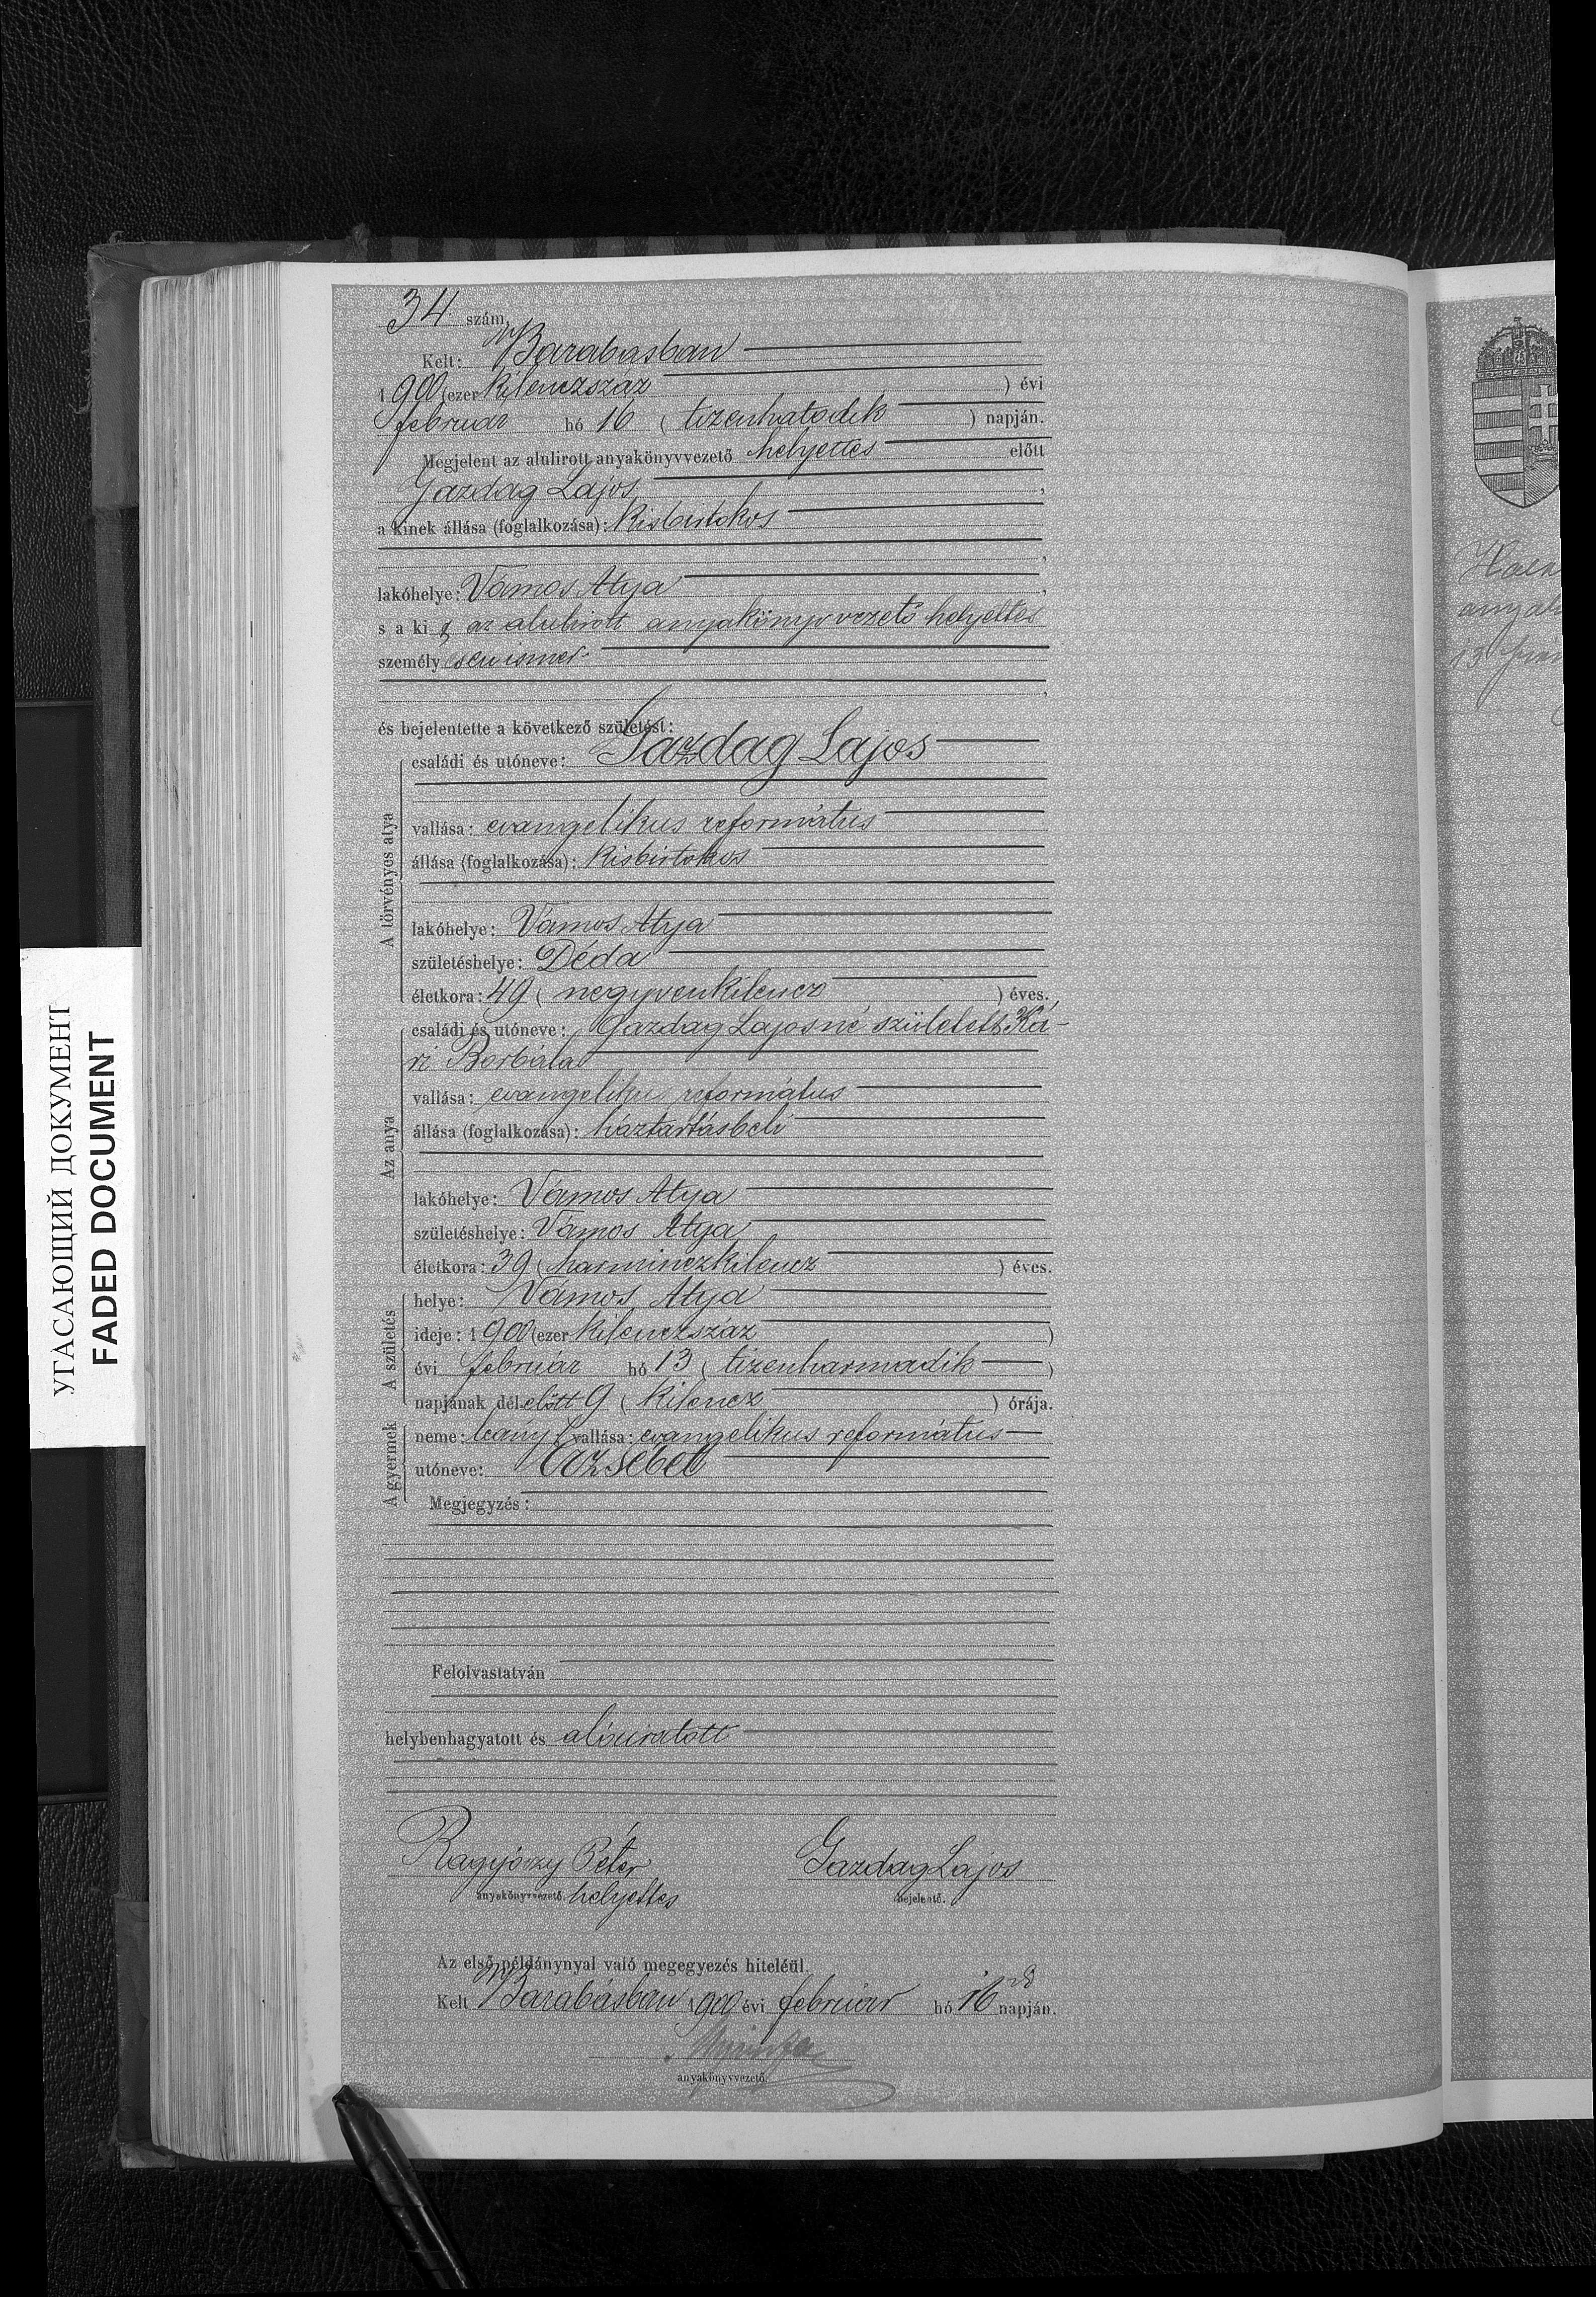 34 szám.
Kelt: Barabásban
1900 (ezer kilenczszáz ) évi
február hó 16 ( tizenhatodik ) napján.
Megjelent az alulirott anyakönyvvezető helyettes előtt
Gazdag Lajos,
a kinek állása (foglalkozása): kisbirtokos
,
lakóhelye: Vámos Atya,
s a kit az alulirott anyakönyvvezető helyettes
személyesen ismer
,
és bejelentette a következő születést:
A törvényes atya
családi és utóneve: Gazdag Lajos
vallása: evangelikus református
állása (foglalkozása): kisbirtokos
lakóhelye: Vámos Atya
születéshelye: Déda
életkora: 49 ( negyvenkilencz ) éves.
Az anya
családi és utóneve: Gazdag Lajosné született Ká-
ri Borbála
vallása: evangelikus református
állása (foglalkozása): háztartásbeli
lakóhelye: Vámos Atya
születéshelye: Vámos Atya
életkora: 39 ( harminczkilencz ) éves.
A születés
helye: Vámos Atya
ideje: 1900 (ezer kilenczszáz )
évi február hó 13 ( tizenharmadik )
napjának délelőtt 9 ( kilencz ) órája.
A gyermek
neme: leány vallása: evangelikus református
utóneve: Erzsébet
Megjegyzés:
Felolvastatván
helybenhagyatott és aláiratott
Péter Gazdag Lajos
anyakönyvvezető. helyettes bejelentő.
Az első példánynyal való megegyezés hiteléül.
Kelt Barabásban 1900 évi február hó 16 napján.
anyakönyvvezető.
УГАСАЮЩИЙ ДОКУМЕНТ
FADED DOCUMENT